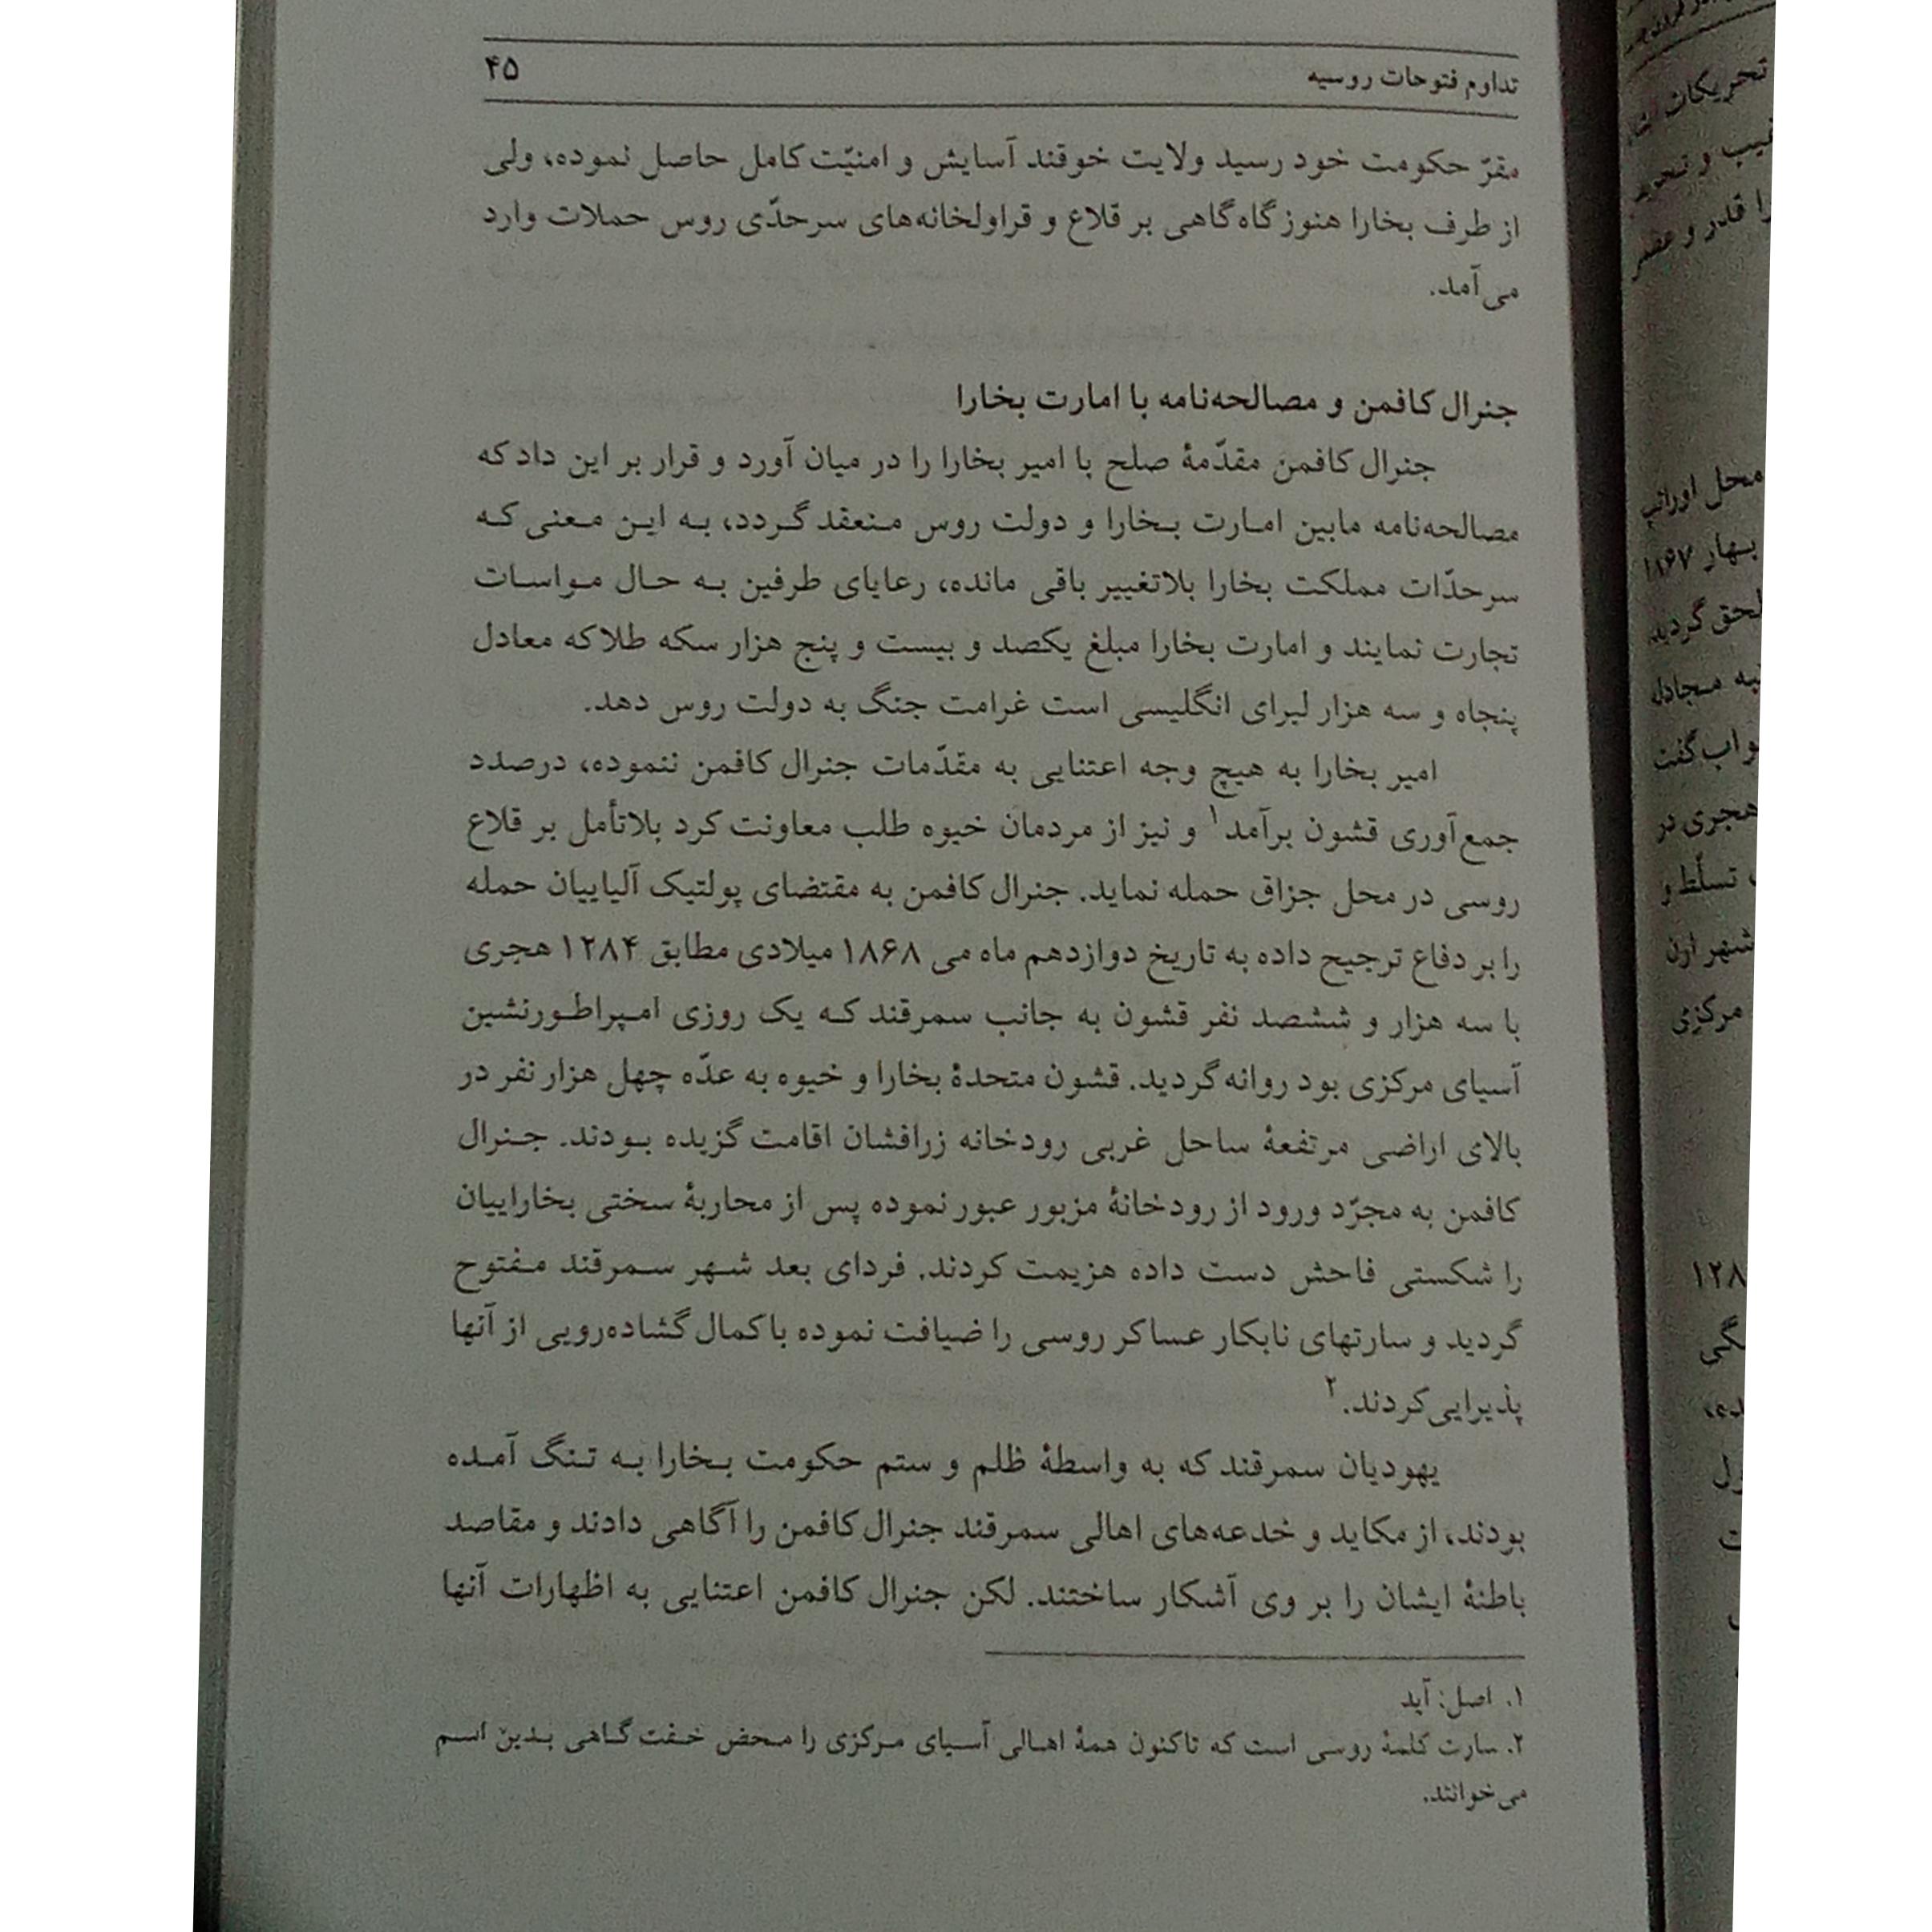 تداوم فتوحات روسیه ۴۵
مقرّ حکومت خود رسید ولایت خوقند آسایش و امنیّت کامل حاصل نموده، ولی
از طرف بخارا هنوز گاه‌گاهی بر قلاع و قراولخانه‌های سرحدّی روس حملات وارد
می‌آمد.
جنرال کافمن و مصالحه‌نامه با امارت بخارا
جنرال کافمن مقدّمهٔ صلح با امیر بخارا را در میان آورد و قرار بر این داد که
مصالحه‌نامه مابین امارت بخارا و دولت روس منعقد گردد، به این معنی که
سرحدّات مملکت بخارا بلاتغییر باقی مانده، رعایای طرفین به حال مواسات
تجارت نمایند و امارت بخارا مبلغ یکصد و بیست و پنج هزار سکه طلا که معادل
پنجاه و سه هزار لیرای انگلیسی است غرامت جنگ به دولت روس دهد.
امیر بخارا به هیچ وجه اعتنایی به مقدّمات جنرال کافمن ننموده، درصدد
جمع‌آوری قشون برآمد۱ و نیز از مردمان خیوه طلب معاونت کرد بلاتأمل بر قلاع
روسی در محل جزاق حمله نماید. جنرال کافمن به مقتضای پولتیک آلیاییان حمله
را بر دفاع ترجیح داده به تاریخ دوازدهم ماه می ۱۸۶۸ میلادی مطابق ۱۲۸۴ هجری
با سه هزار و ششصد نفر قشون به جانب سمرقند که یک روزی امپراطورنشین
آسیای مرکزی بود روانه گردید. قشون متحدهٔ بخارا و خیوه به عدّه چهل هزار نفر در
بالای اراضی مرتفعهٔ ساحل غربی رودخانه زرافشان اقامت گزیده بودند. جنرال
کافمن به مجرّد ورود از رودخانهٔ مزبور عبور نموده پس از محاربهٔ سختی بخاراییان
را شکستی فاحش دست داده هزیمت کردند. فردای بعد شهر سمرقند مفتوح
گردید و سارتهای نابکار عساکر روسی را ضیافت نموده با کمال گشاده‌رویی از آنها
پذیرایی کردند.۲
یهودیان سمرقند که به واسطهٔ ظلم و ستم حکومت بخارا به تنگ آمده
بودند، از مکاید و خدعه‌های اهالی سمرقند جنرال کافمن را آگاهی دادند و مقاصد
باطنهٔ ایشان را بر وی آشکار ساختند. لکن جنرال کافمن اعتنایی به اظهارات آنها
۱. اصل: آید
۲. سارت کلمهٔ روسی است که تاکنون همهٔ اهالی آسیای مرکزی را محض خفت گاهی بدین اسم
می‌خوانند.
تحریکات
محل
بهار ۱۸۶۷
گردید
مجادله
گفت
هجری در
تسلّط و
شهر
مرکزی